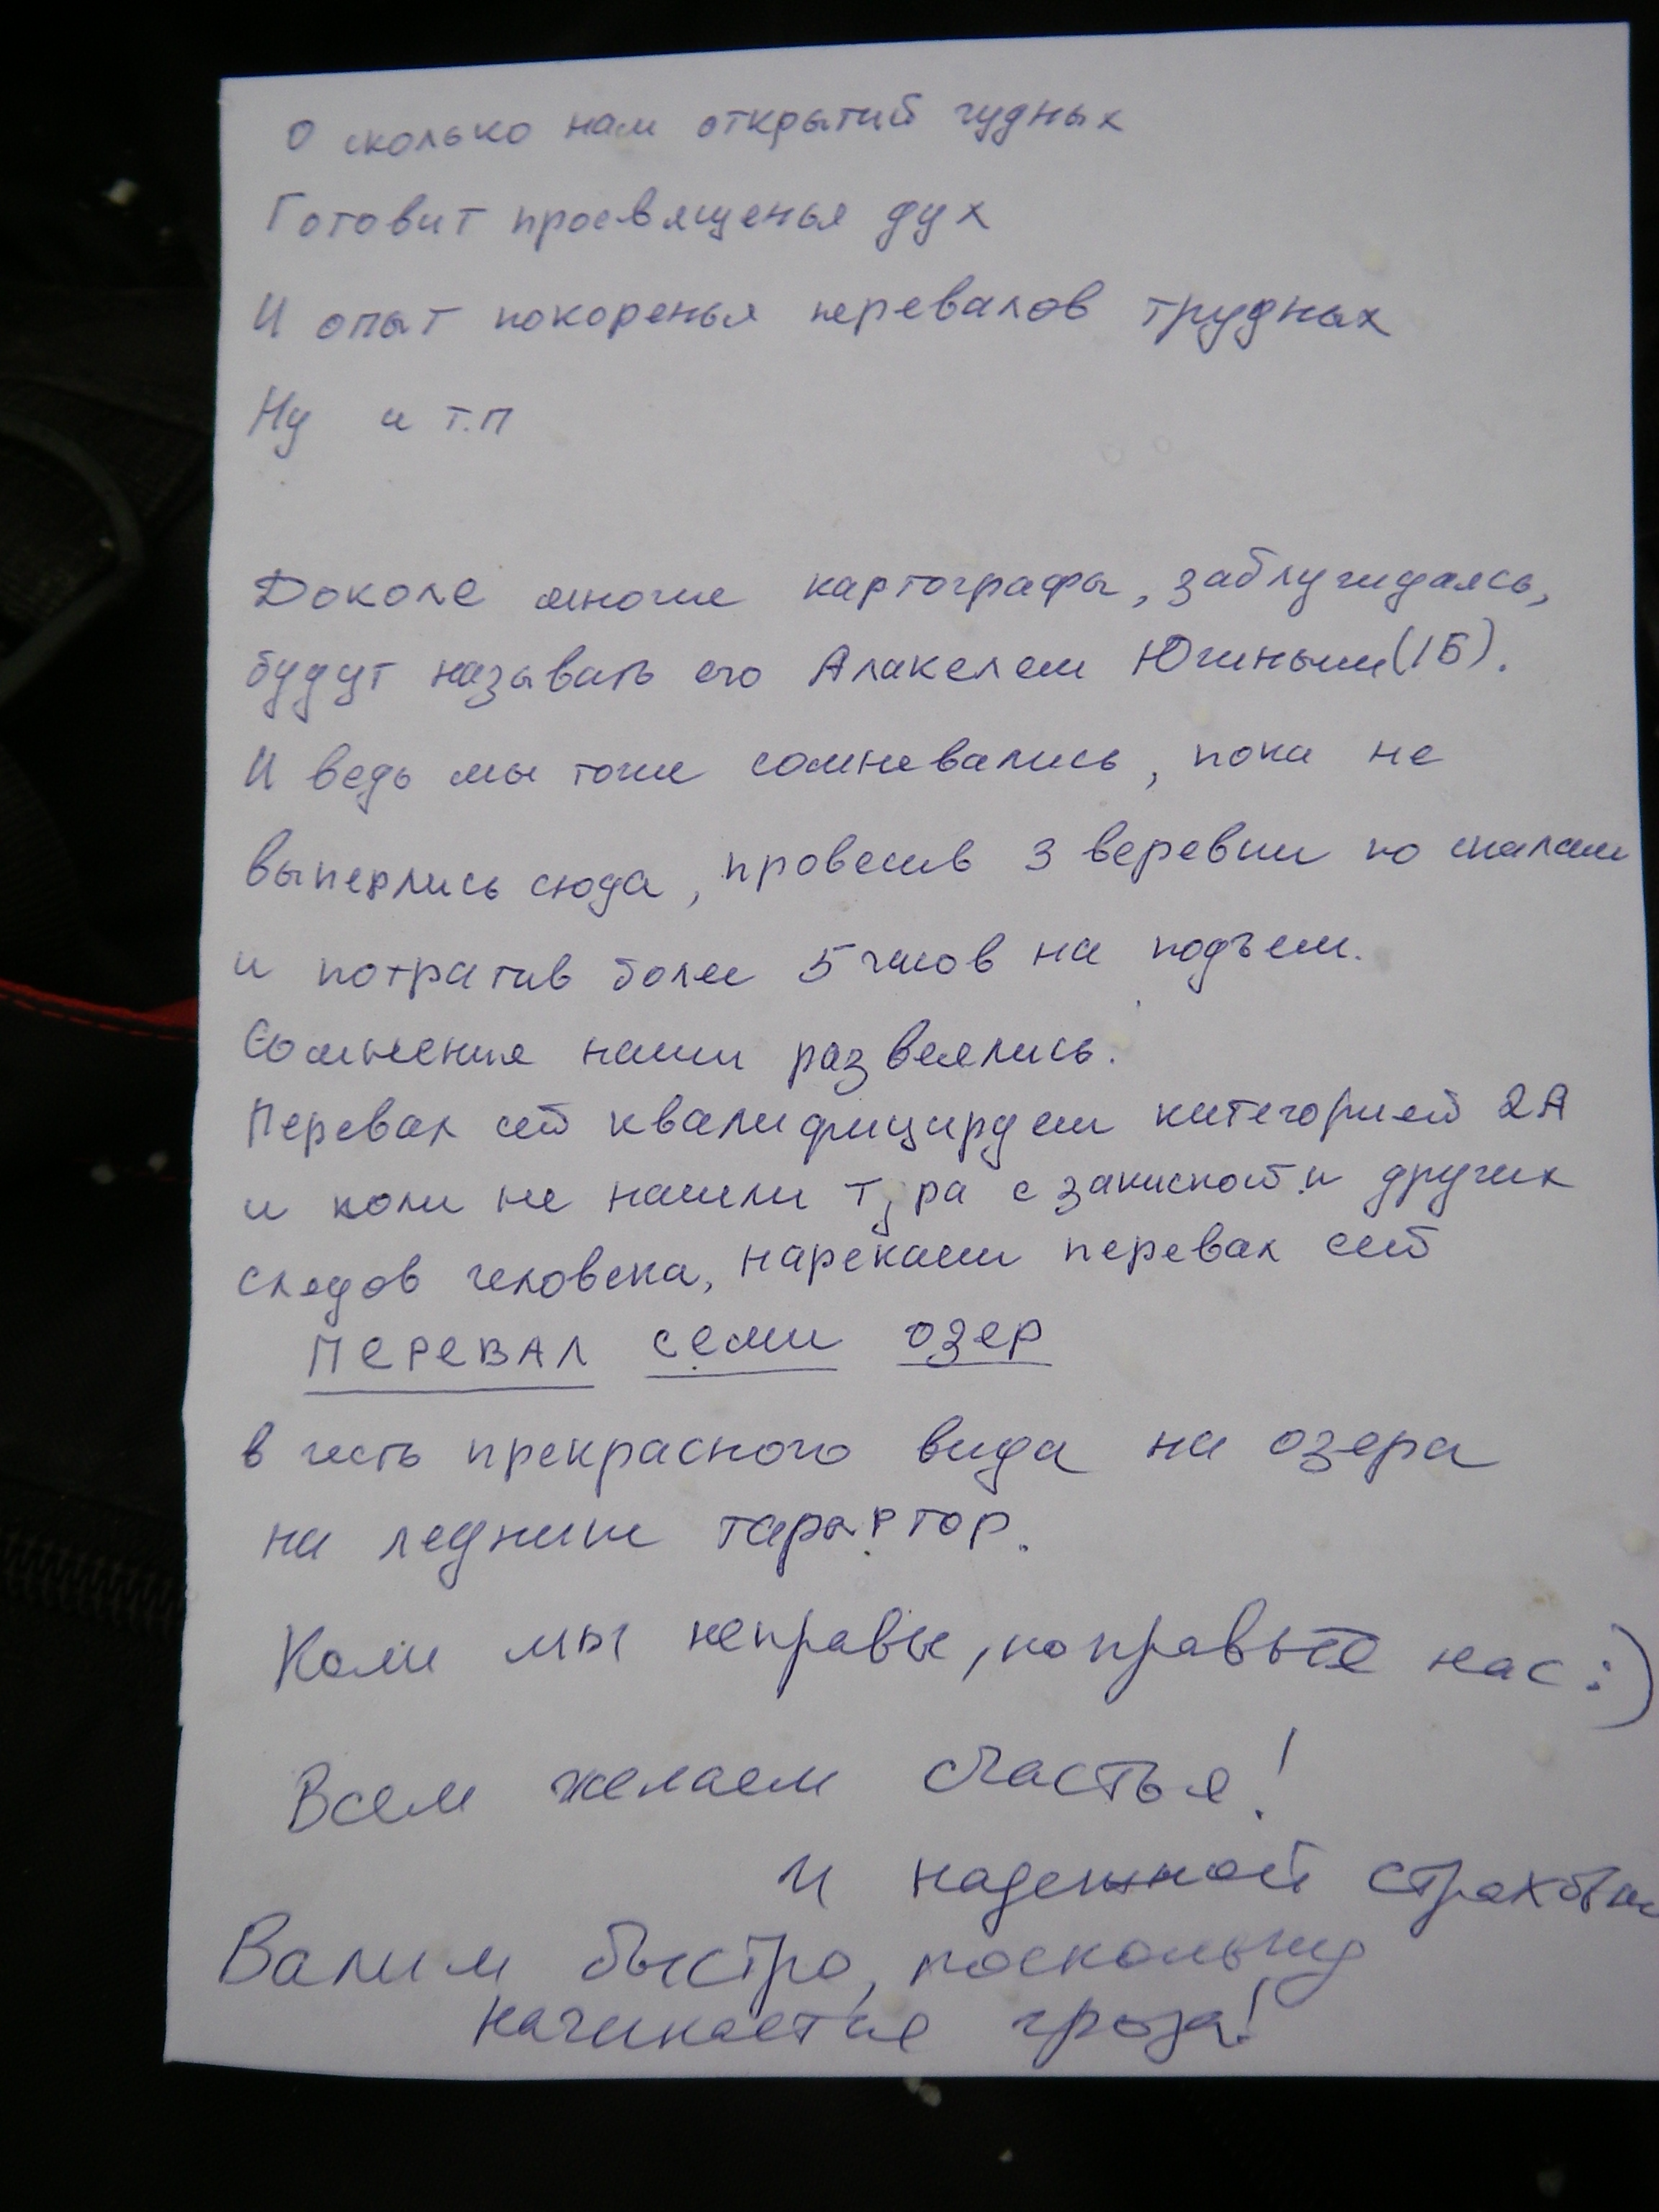 О сколько нам открытий чудных
Готовит просвященья дух
И опыт покоренья перевалов трудных
Ну и т.п
Доколе многие картографы, заблуждаясь,
будут называть его Алакелем Южным (1Б).
И ведь мы тоже сомневались, пока не
выперлись сюда, провесив 3 веревки по скалам
и потратив более 5 часов на подъем.
Сомнения наши развеялись.
Перевал сей квалифицируем категорией 2А
и коли не нашли тура с запиской и других
следов человека, нарекаем перевал сей
ПЕРЕВАЛ семи озер
в честь прекрасного вида на озера
на леднике
Коли мы неправы, поправьте нас :)
Всем желаем счастья!
и надежной страховки
Валим быстро, поскольку
начинается гроза!